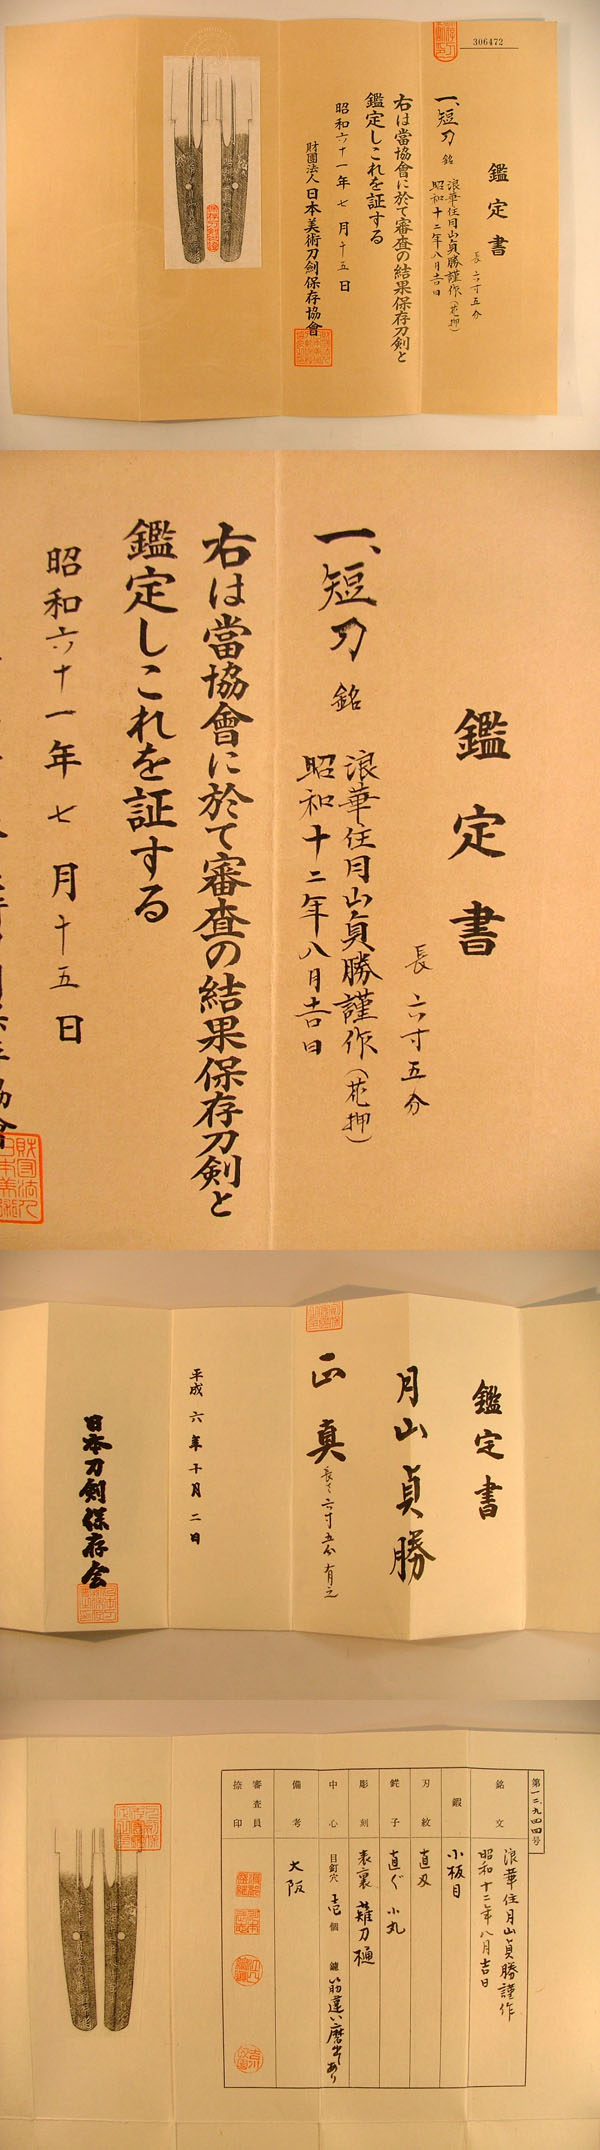 306472
鑑定書
長 六寸五分
一、短刀 銘 浪華住月山貞勝謹作(花押)
昭和十二年八月吉日
右は當協會に於て審査の結果保存刀剣と
鑑定しこれを証する
昭和六十一年七月十五日
財團法人日本美術刀劍保存協會
鑑定書
長 六寸五分
一、短刀 銘 浪華住月山貞勝謹作(花押)
昭和十二年八月吉日
右は當協會に於て審査の結果保存刀剣と
鑑定しこれを証する
昭和六十一年七月十五日
鑑定書
月山貞勝
正真 長さ六寸五分有之
平成六年十月二日
日本刀剣保存会
第一二九四四号
銘文 浪華住月山貞勝謹作
昭和十二年八月吉日
鍛 小板目
刃紋 直刃
鋩子 直ぐ 小丸
彫刻 表裏 薙刀樋
中心 目釘穴 壱個 鑢 筋違い磨出あり
備考 大阪
審査員
捺印